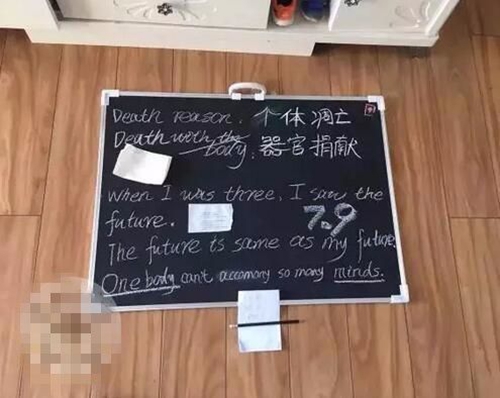 Death reason: 个体凋亡
Death with the body: 器官捐献
When I was three, I saw the
future.
7.9
The future is same as my future.
One body can't accomany so many minds.